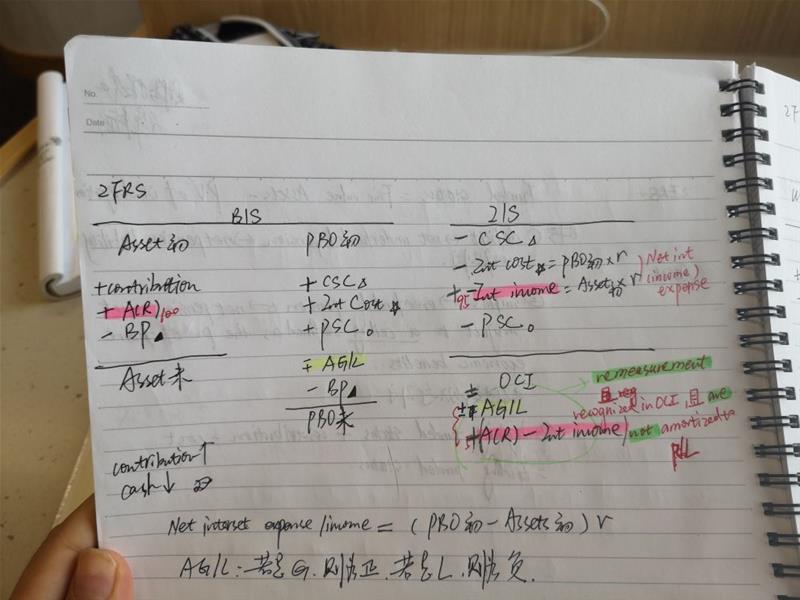 No.
Date
IFRS
B/S
I/S
Asset初 PBO初
- CSC△
- Int cost☆ = PBO初 × r
+contribution + CSC△
+ Int income = Asset初 × r
Net int (income) expense
+ A(R) 100 + Int Cost☆
95
- BP▲ + PSC。
- PSC。
∓ AG/L
Asset末 - BP▲
PBO末
± OCI
remeasurement
± AG/L
recognized in OCI 且 are
+(A(R) - Int income) not amortized to
P/L
contribution↑
cash↓
Net interset expense/income = (PBO初 - Assets初) r
AG/L: 若是G, 则为正, 若是L, 则为负.